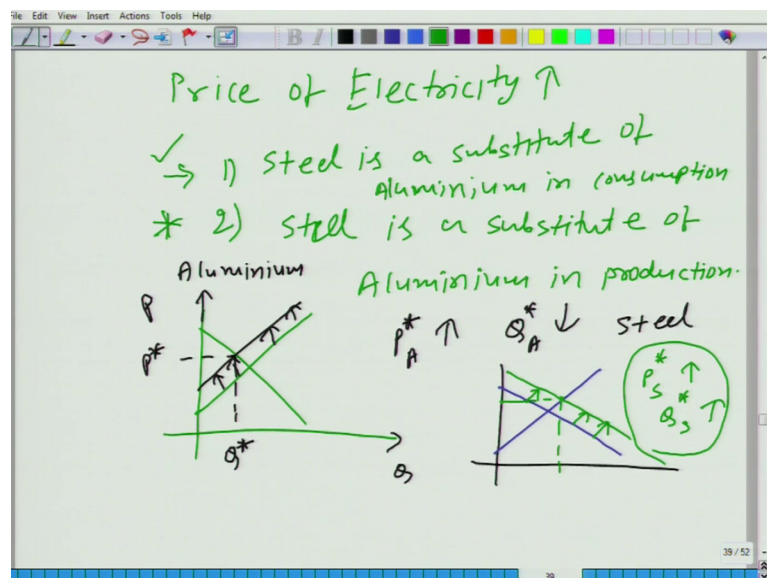 File Edit View Insert Actions Tools Help
B I
Price of Electricity ↑
✓
→ 1) Steel is a substitute of
Aluminium in consumption
* 2) Steel is a substitute of
Aluminium in production.
Aluminium
P
P*
Q*
Q
P*A ↑ Q*A ↓ Steel
P*S ↑
Q*S ↑
39 / 52
39